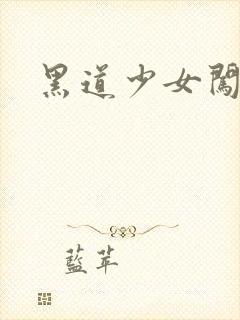 黑道少女闖
藍苹